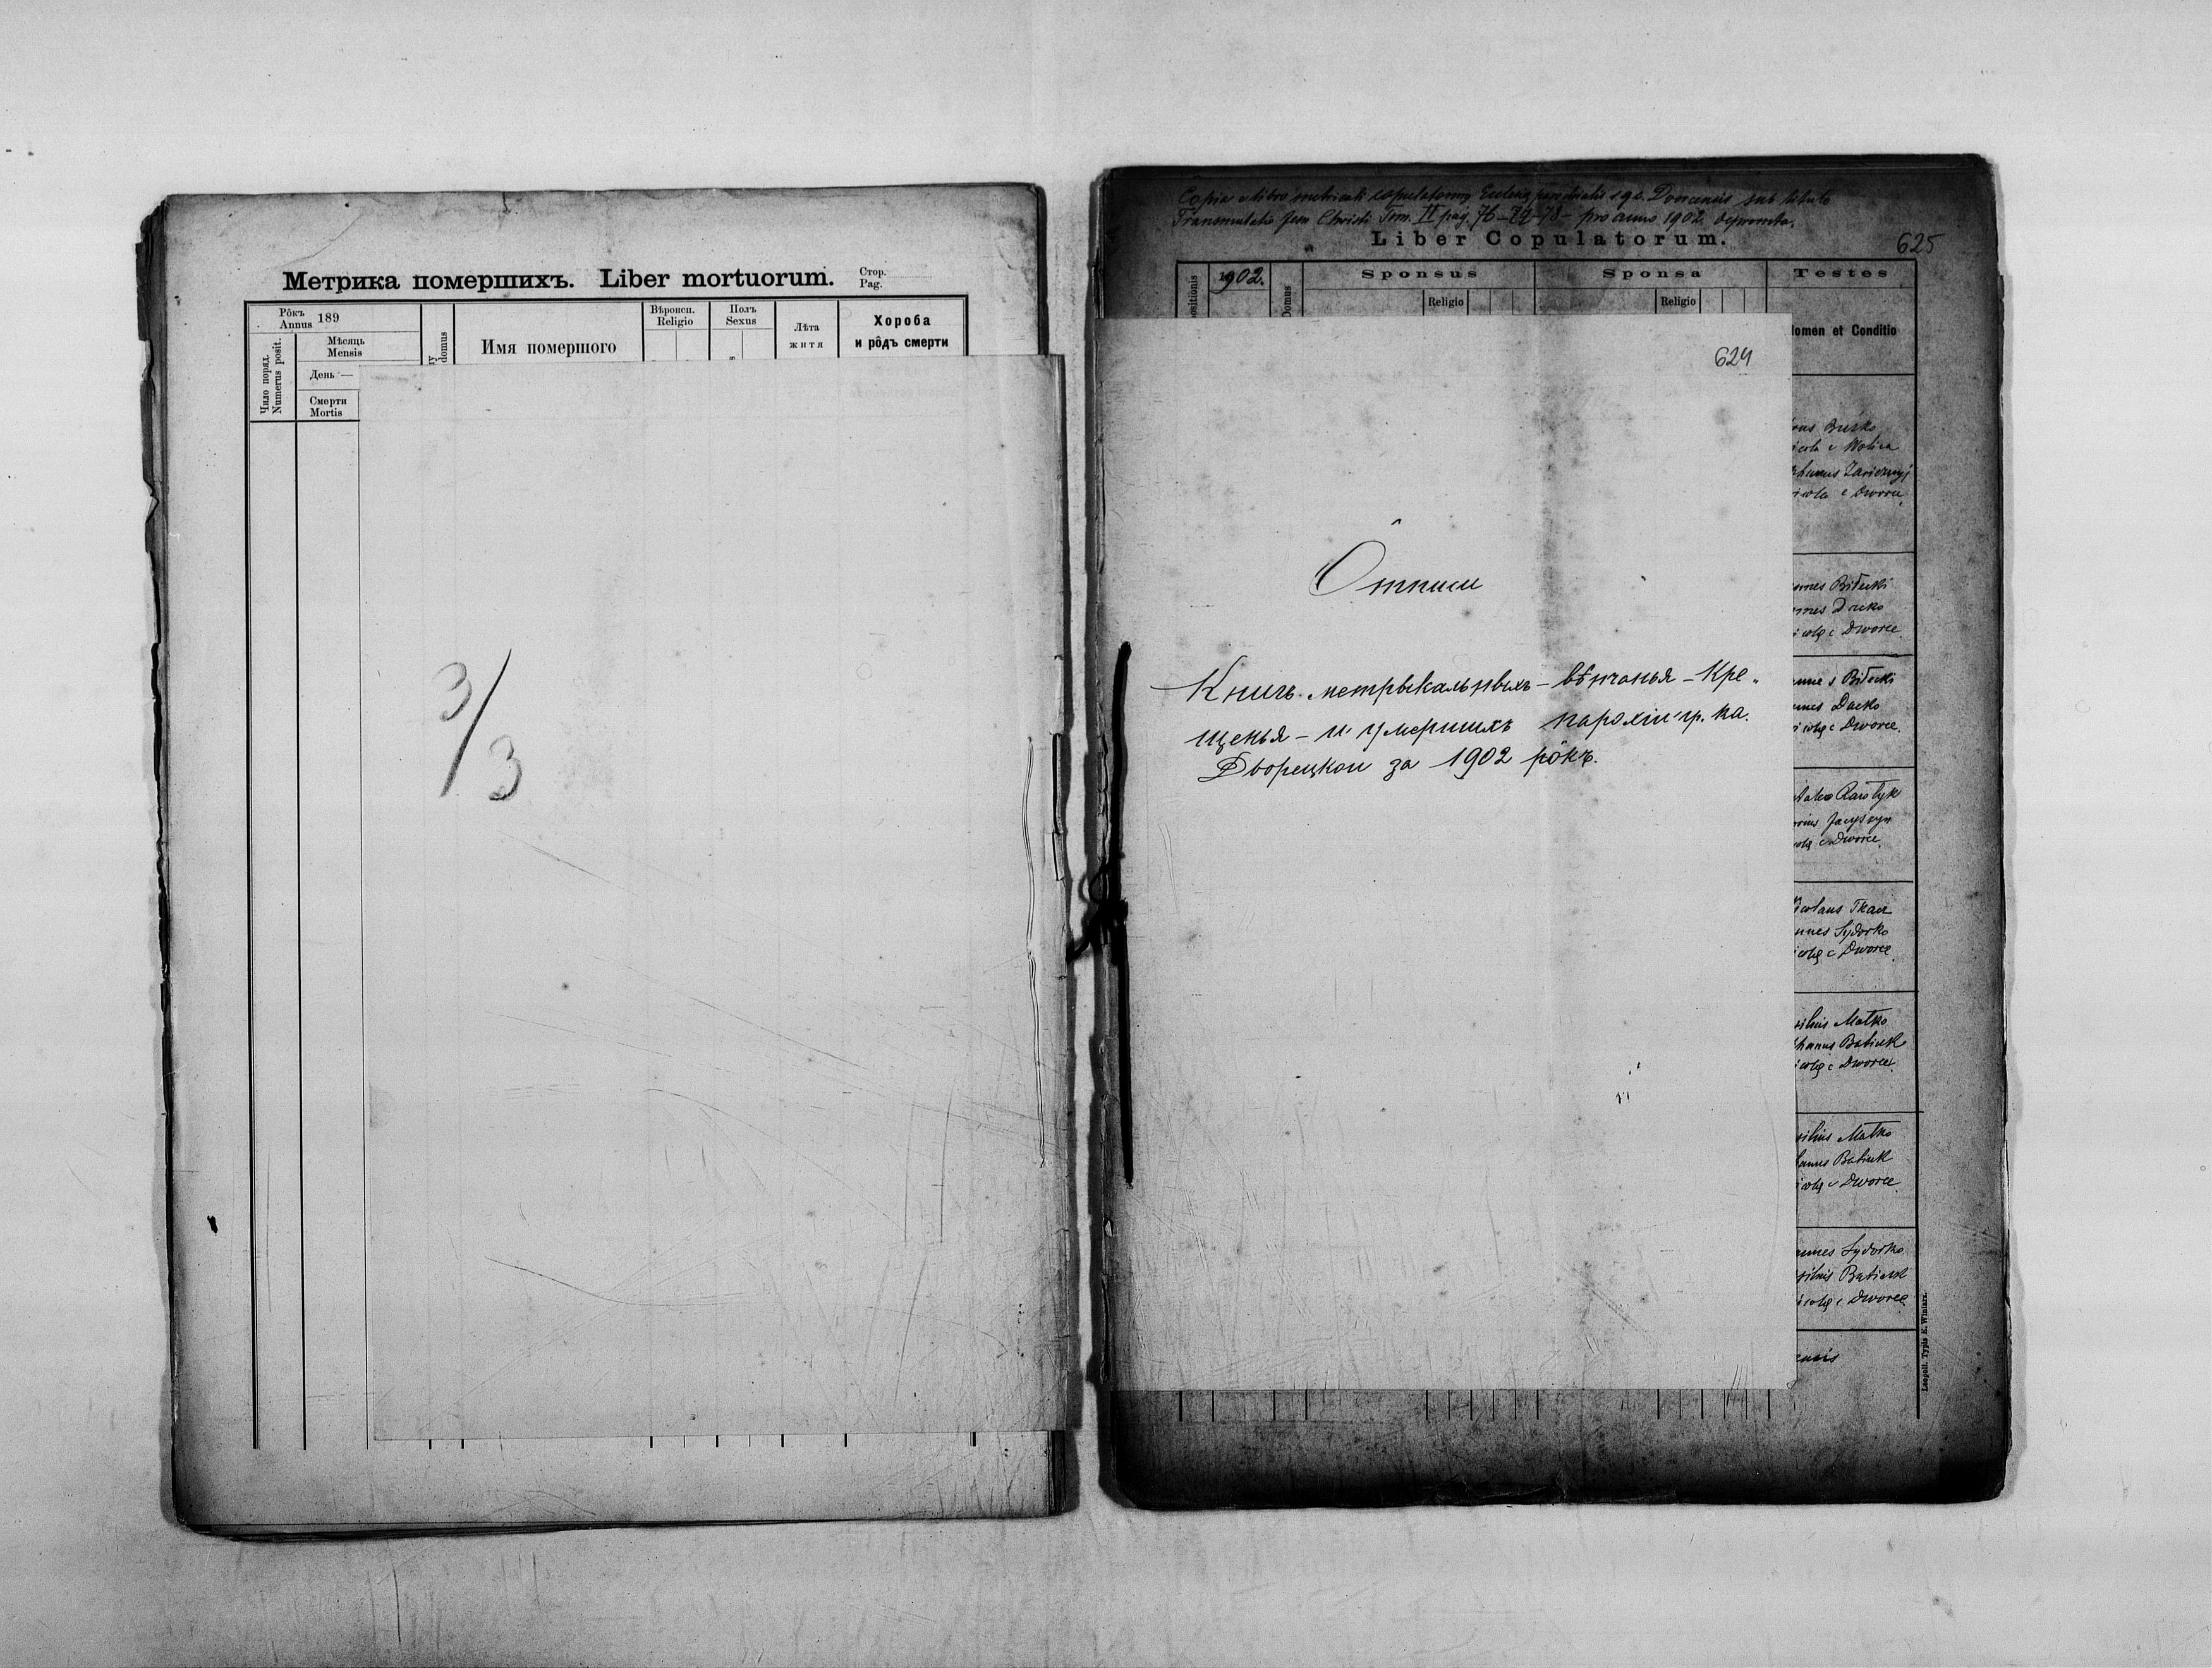 Метрика помершихъ. Liber mortuorum.
Стор.
Pag.
Рôкъ
Annus 189
Чило поряд.
Numerus posit.
Мѣсяць
Mensis
День —
Смерти
Mortis
domus
Имя помершого
Вѣроисп.
Religio
Полъ
Sexus
Лѣта
житя
Хороба
и рôдъ смерти
3/3
Copia e libro metricali copulatorum Ecclesiae parochialis r. g. c. Dvorcensis sub titulo
Transmutatio Jesu Christi Tom. II pag. 76-77-78 - pro anno 1902 deprompta.
Liber Copulatorum.
625
1902.
Domus
Sponsus
Religio
Sponsa
Religio
Testes
Nomen et Conditio
624
Ôтписи
Книгъ метрыкальныхъ - вѣнчанья - Кре„
щенья - и умершихъ парохіи гр. ка.
Дворецкои за 1902 рôкъ.
Busko
Wolica
Zariczny
Dworce
Biłecki
Dacko
Dworce
Biłecki
Dacko
Dworce
Dworce
Tkacz
Sydorko
Dworce
Matko
Batiuk
Dworce
Matko
Batiuk
Dworce
Sydorko
Batiuk
Dworce
Leopoli. Typis E. Winiarz.